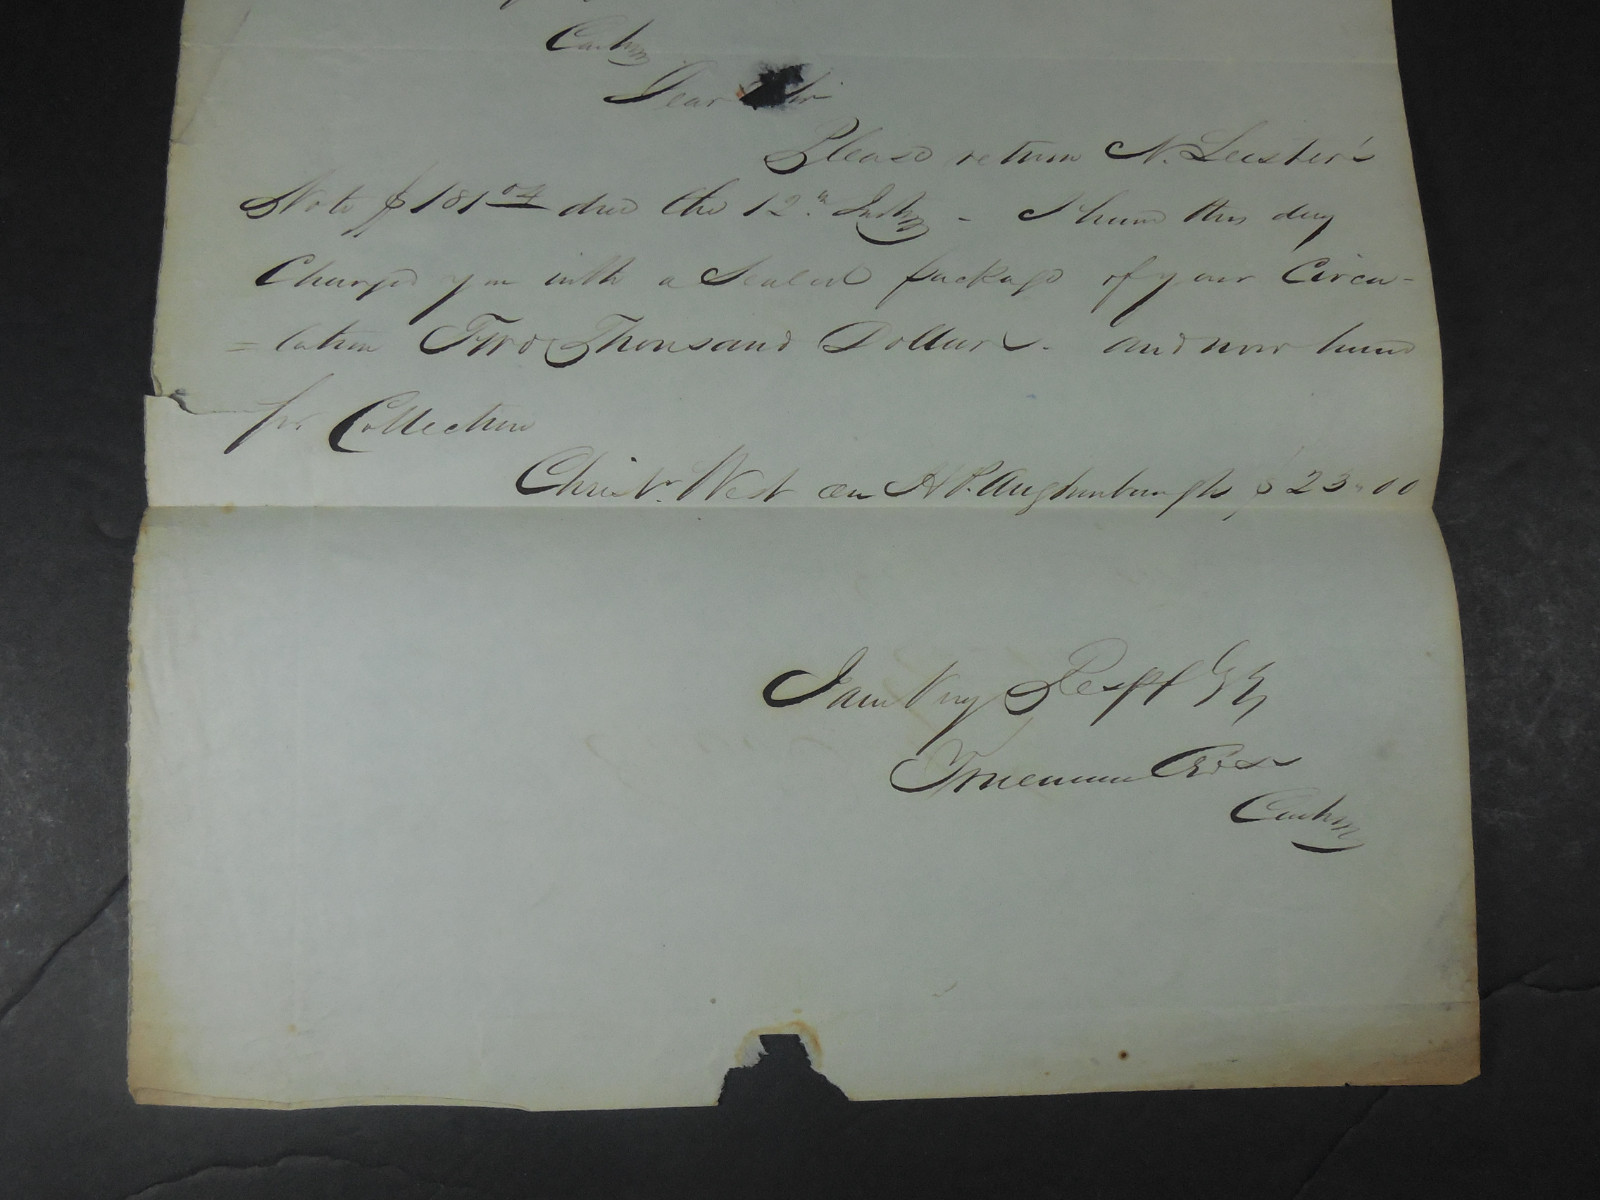 Cashr
Dear Sir
Please return N. Leister's
Note $181 04 due the 12th Instr - I have this day
Charged you with a Sealed package of your Circu-
=lation Two Thousand Dollars - and now hand
for Collection
Christr. West on A P. Aughinbaugh $23.00
I am Very Respf Yrs
Trueman Cross
Cashr